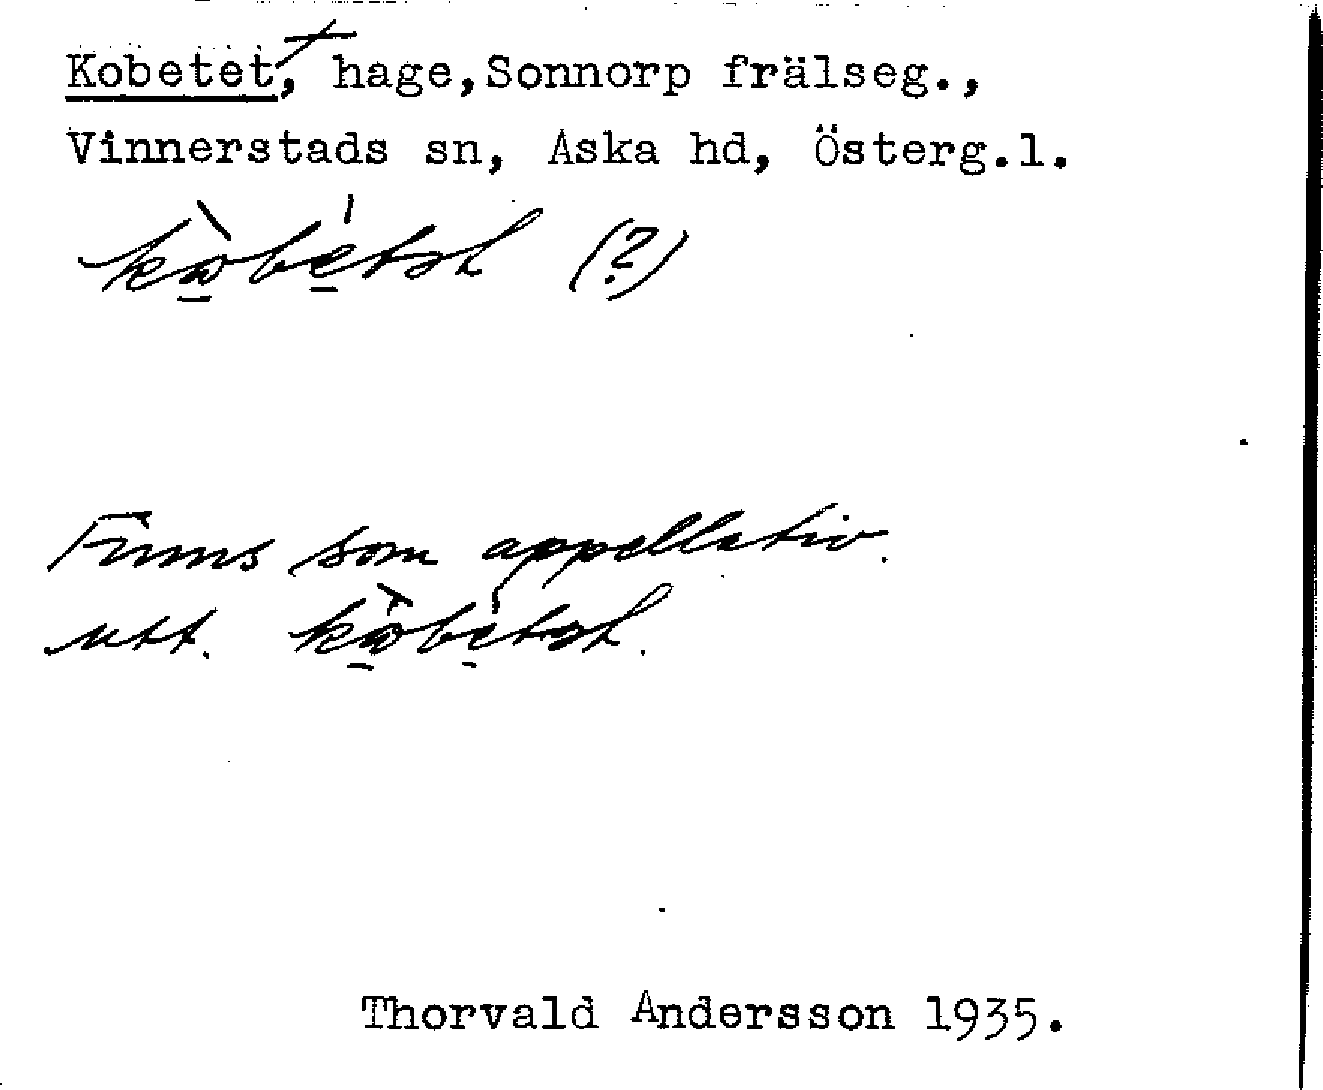 Kobetet, hage, Sonnorp frälseg.,
Vinnerstads sn, Aska hd, Österg.l.
(?)
Finns som appellativ.
utt.
Thorvald Andersson 1935.